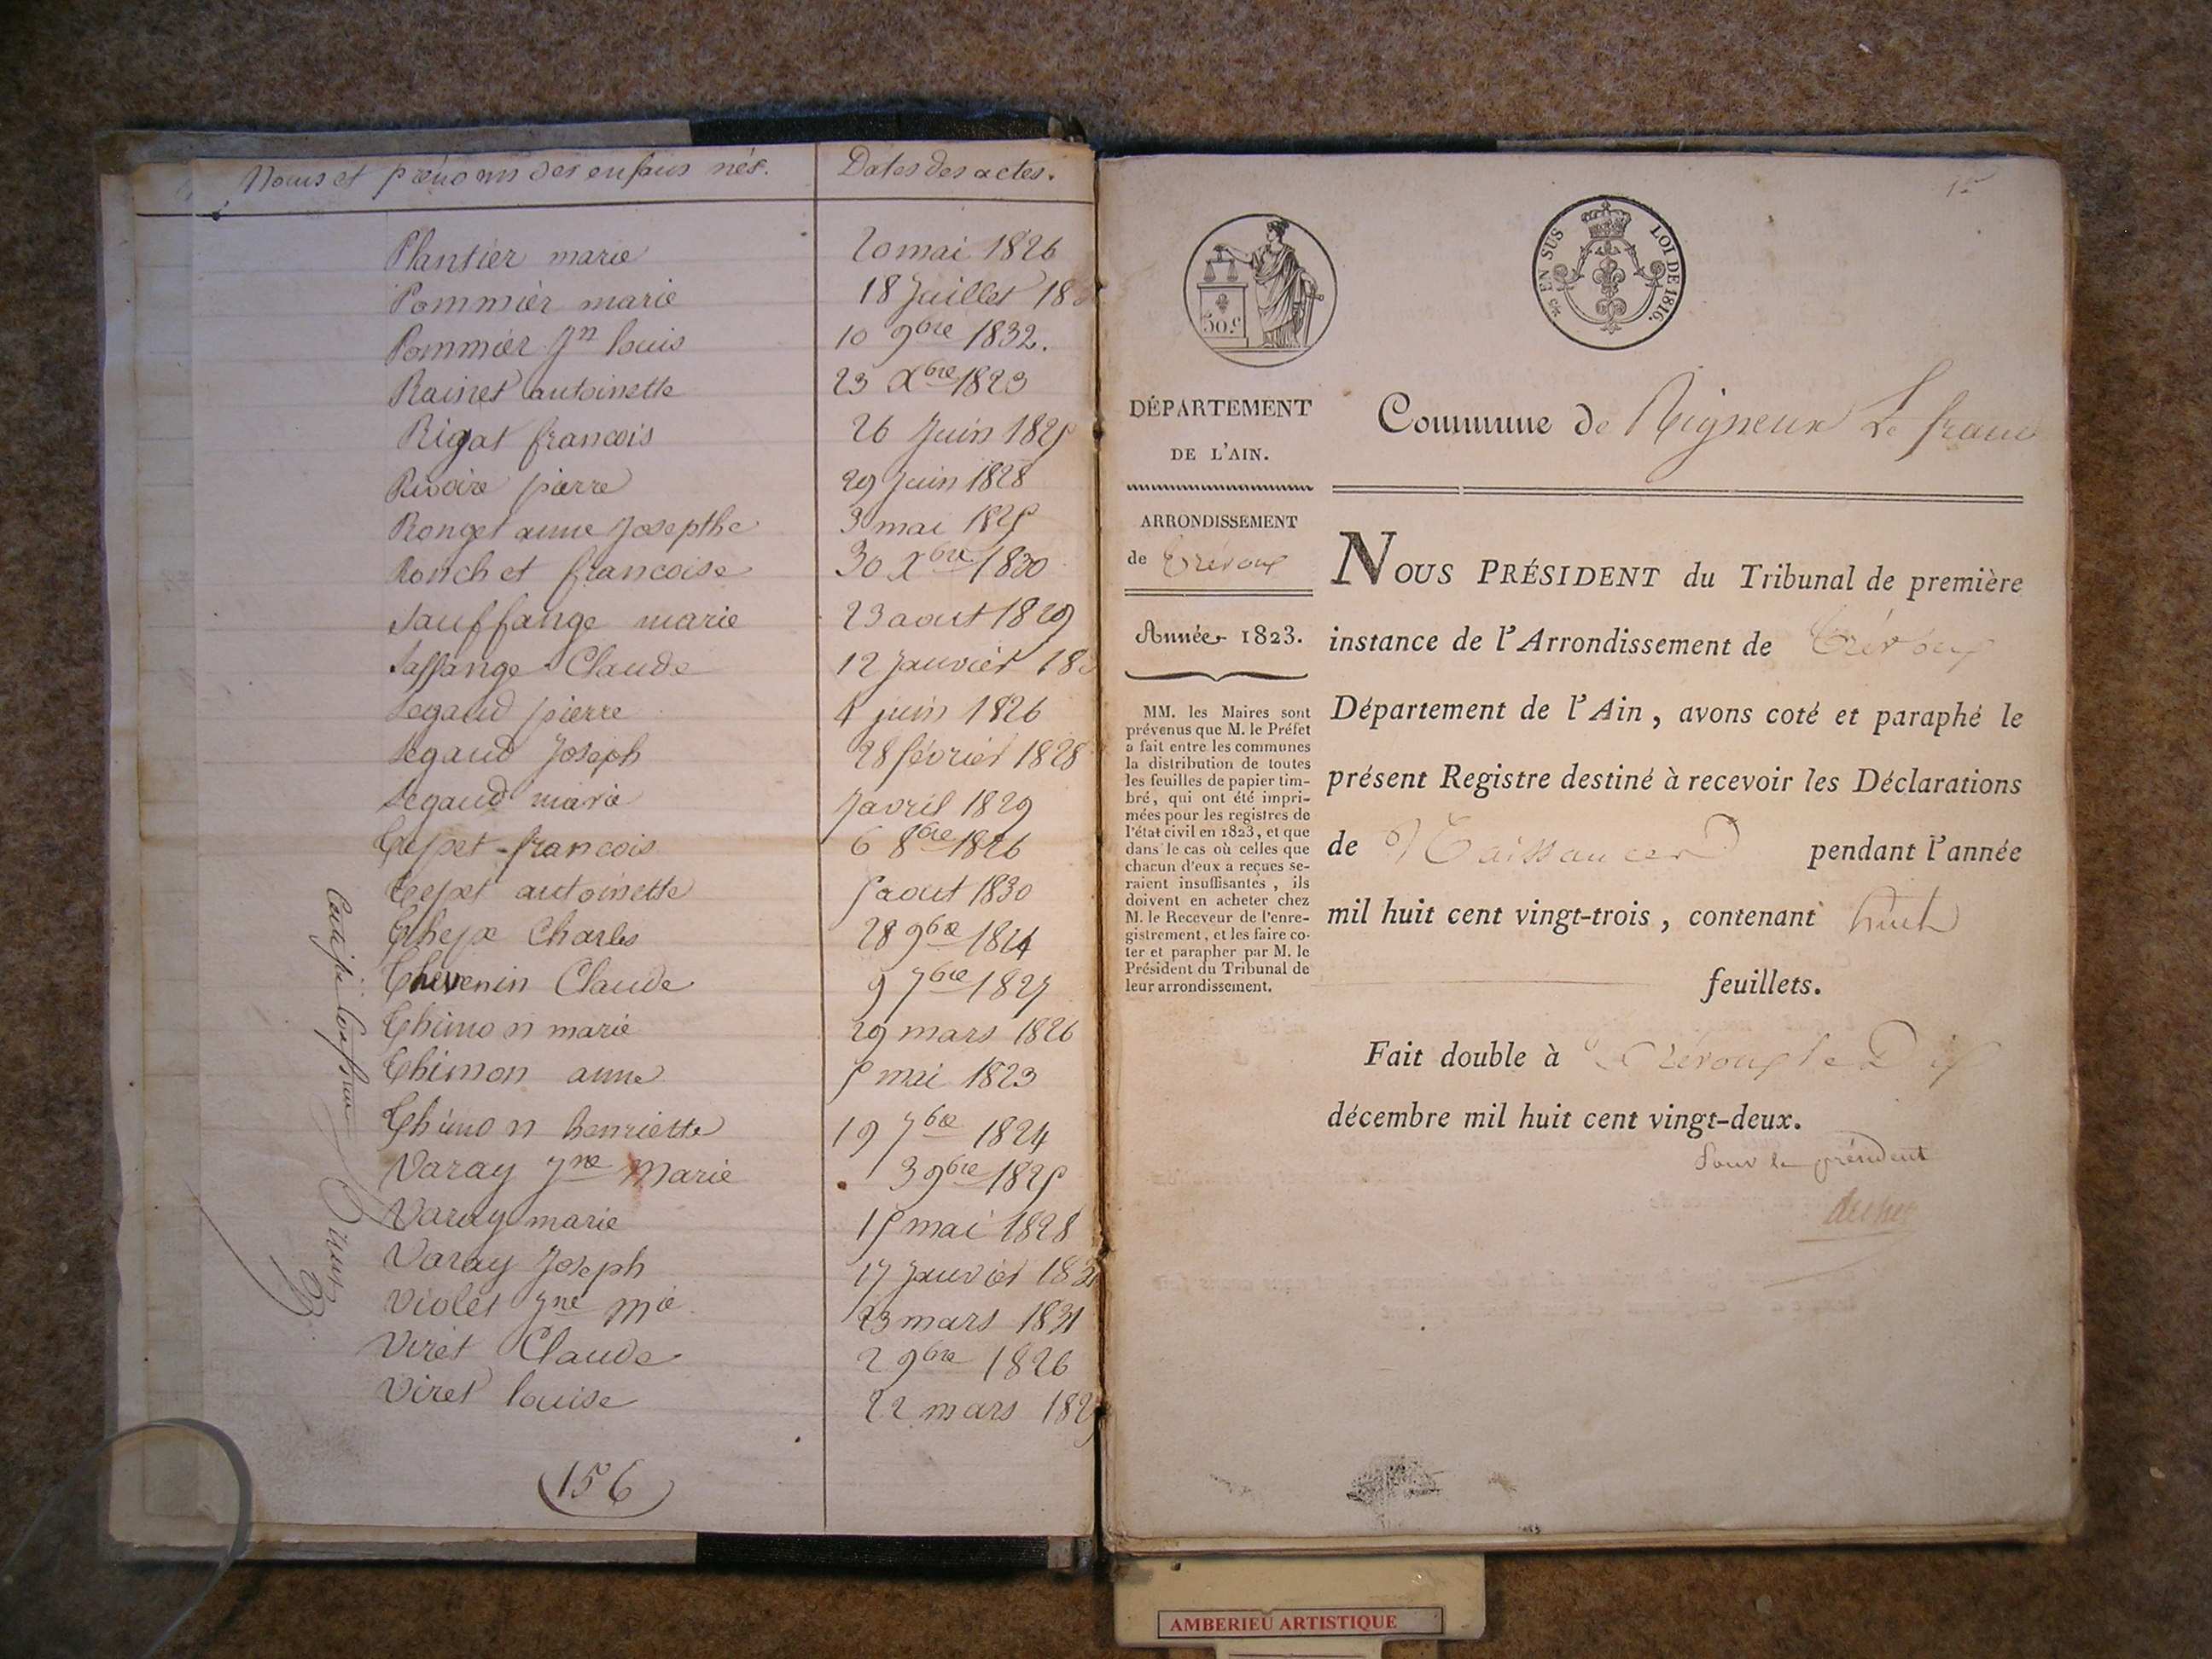 Noms et prénoms des enfans nés. Dates des actes.
Plantier marie 20 mai 1826
Pommier marie 18 Juillet 18
Pommier Jn louis 10 9bre 1832.
Rainet antoinette 23 Xbre 1823
Rigat francois 26 Juin 1825
Rivoire pierre 29 Juin 1828
Ronget anne Josepthe 3 mai 1825
Ronchet francoise 30 Xbre 1830
Sauffange marie 23 aout 1829
Saffange Claude 12 Janvier 18
Segaud pierre 4 juin 1826
Segaud Joseph 28 février 1828
Segaud marie 7 avril 1829
Tepet francois 6 8bre 1826
Tepet antoinette 5 aout 1830
Charles 28 9bre 1824
Thevenin Claude 9 7bre 1827
Thimon marie 29 mars 1826
Thimon anne 5 mai 1823
Thimon henriette 19 7bre 1824
Varay Jne Marie 3 9bre 1825
Varay marie 15 mai 1828
Varay Joseph 17 Janvier 183
Violet Jne Mie 23 mars 1831
Viret Claude 2 9bre 1826
Viret louise 22 mars 182
(156)
50 c
EN SUS LOI DE 1816.
DÉPARTEMENT
DE L'AIN.
Commune de Rigneux Le franc
ARRONDISSEMENT
de Trévoux
Année 1823.
MM. les Maires sont
prévenus que M. le Préfet
a fait entre les communes
la distribution de toutes
les feuilles de papier tim-
bré, qui ont été impri-
mées pour les registres de
l'état civil en 1823, et que
dans le cas où celles que
chacun d'eux a reçues se-
raient insuffisantes, ils
doivent en acheter chez
M. le Receveur de l'enre-
gistrement, et les faire co-
ter et parapher par M. le
Président du Tribunal de
leur arrondissement.
NOUS PRÉSIDENT du Tribunal de première
instance de l'Arrondissement de Trévoux
Département de l'Ain, avons coté et paraphé le
présent Registre destiné à recevoir les Déclarations
de Naissances pendant l'année
mil huit cent vingt-trois, contenant huit
feuillets.
Fait double à Trévoux le Dix
décembre mil huit cent vingt-deux.
Pour le président
AMBERIEU ARTISTIQUE